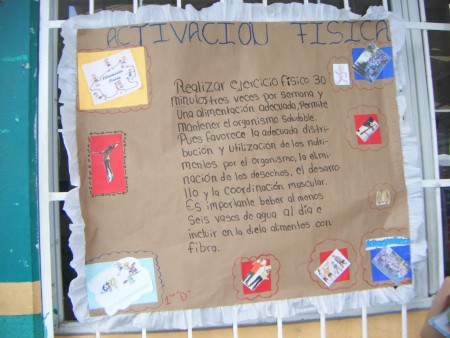 ACTIVACION FISICA
Realizar ejercicio fisico 30
minutos tres veces por semana y
Una alimentación adecuada, Permite
Mantener el organismo Saludable.
Pues favorece la adecuada distri-
bución y utilización de los nutri-
mentos por el organismo, la elimi-
nación de los desechos, el desarro-
llo y la coordinación muscular.
Es importante beber al menos
Seis vasos de agua al día e
incluir en la dieta alimentos con
fibra.
1º "D"